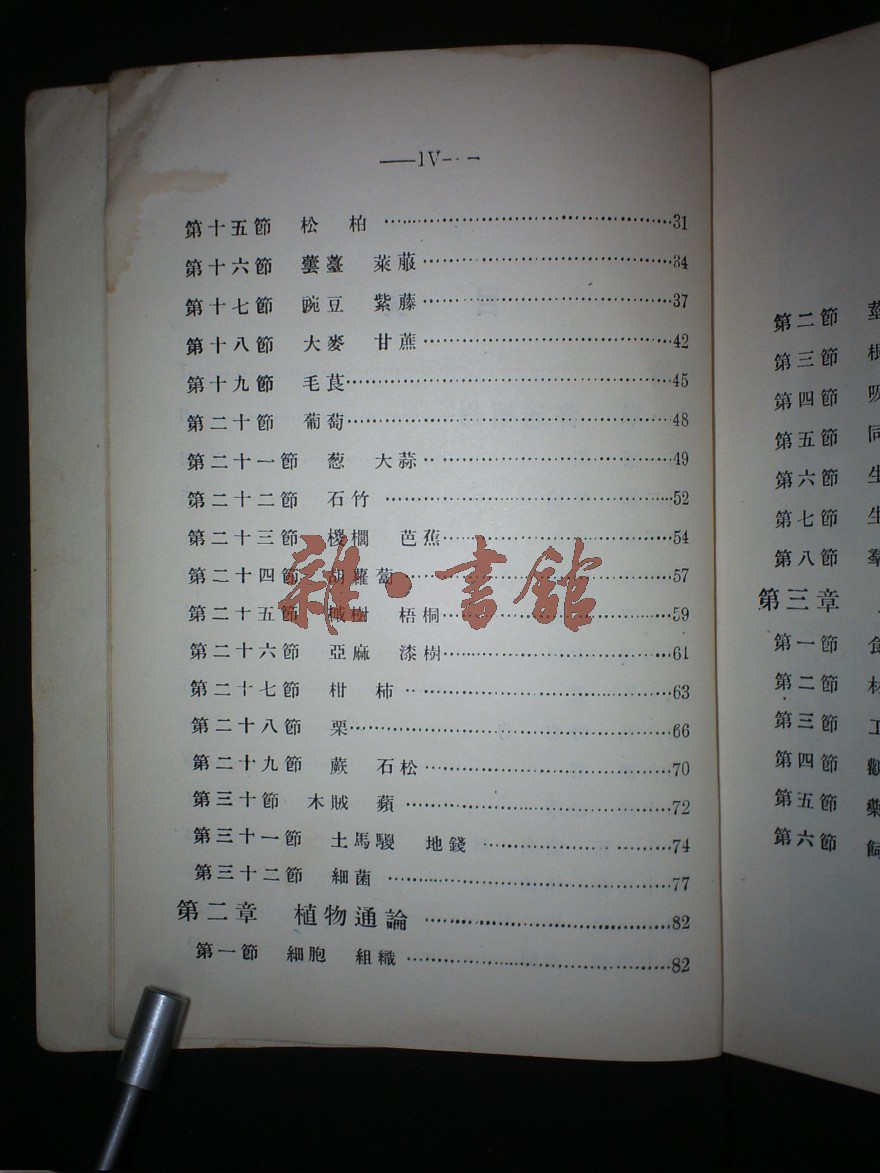 ——IV—·—
第十五節 松 柏 ……31
第十六節 蕓薹 萊菔……34
第十七節 豌豆 紫藤……37
第十八節 大麥 甘蔗……42
第十九節 毛茛……45
第二十節 葡萄……48
第二十一節 葱 大蒜……49
第二十二節 石竹……52
第二十三節 椶櫚 芭蕉……54
第二十四節 胡蘿蔔……57
第二十五節 槭樹 梧桐……59
第二十六節 亞麻 漆樹……61
第二十七節 柑 柿……63
第二十八節 栗……66
第二十九節 蕨 石松……70
第三十節 木賊 蘋……72
第三十一節 土馬騣 地錢……74
第三十二節 細菌……77
第二章 植物通論……82
第一節 細胞 組織……82
雜·書館
第二節
第三節
第四節
第五節 同
第六節 生
第七節 生
第八節 羣
第三章
第一節 食
第二節 材
第三節 工
第四節 觀
第五節 藥
第六節 飼